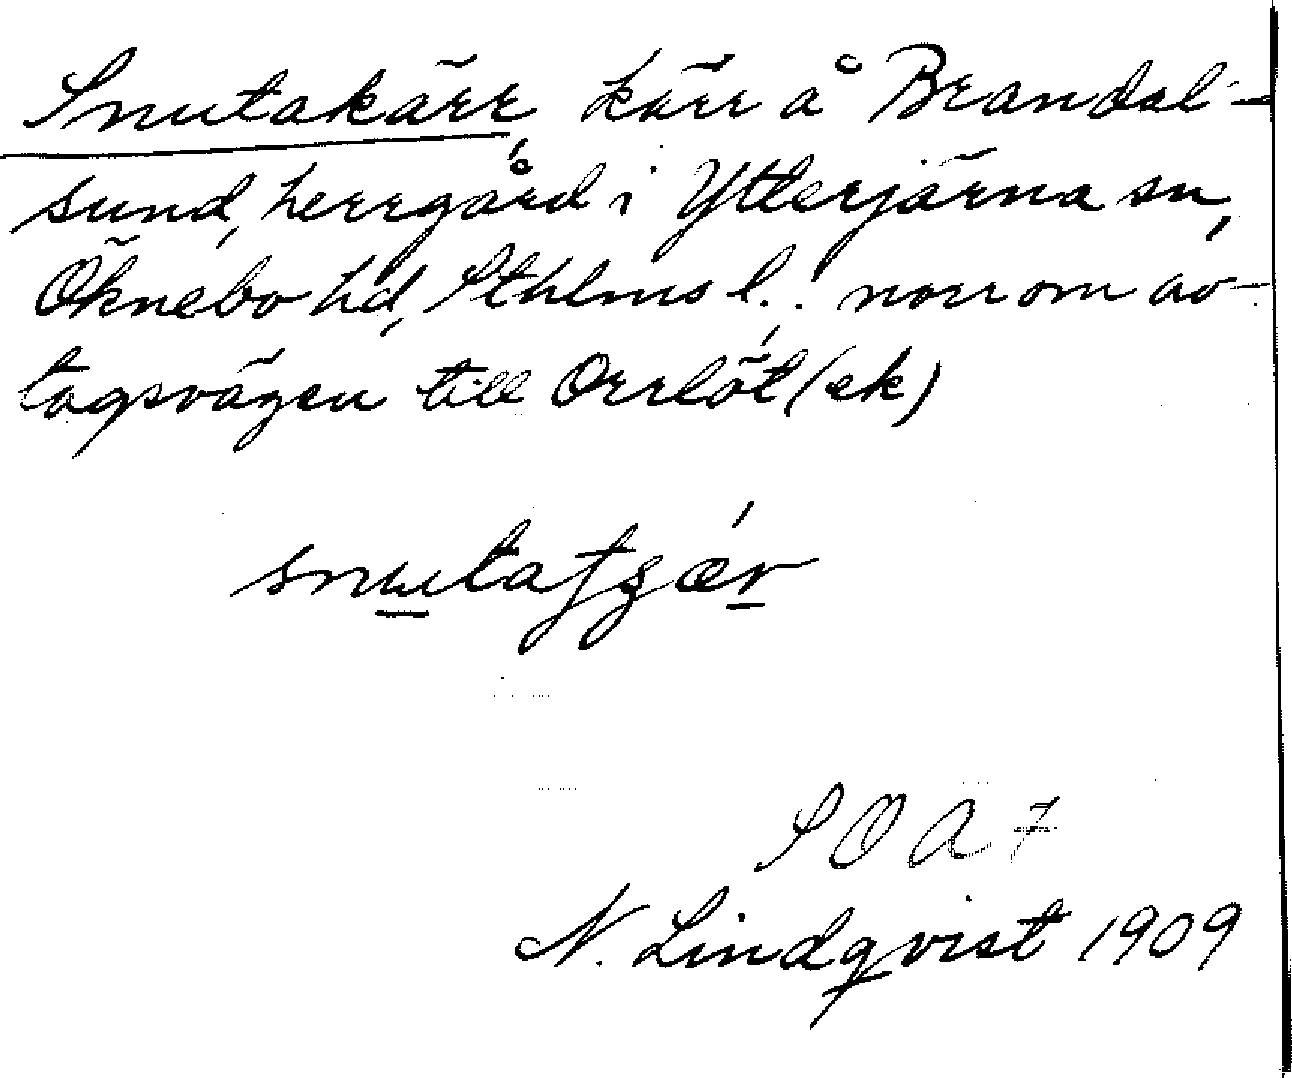 Snutakärr, kärr å Brandal-
sund, herrgård i Ytterjärna sn,
Öknebo hd, Sthlms l.: norr om av-
tagsvägen till Orrlöt (ek)
SOA 7
N. Lindqvist 1909